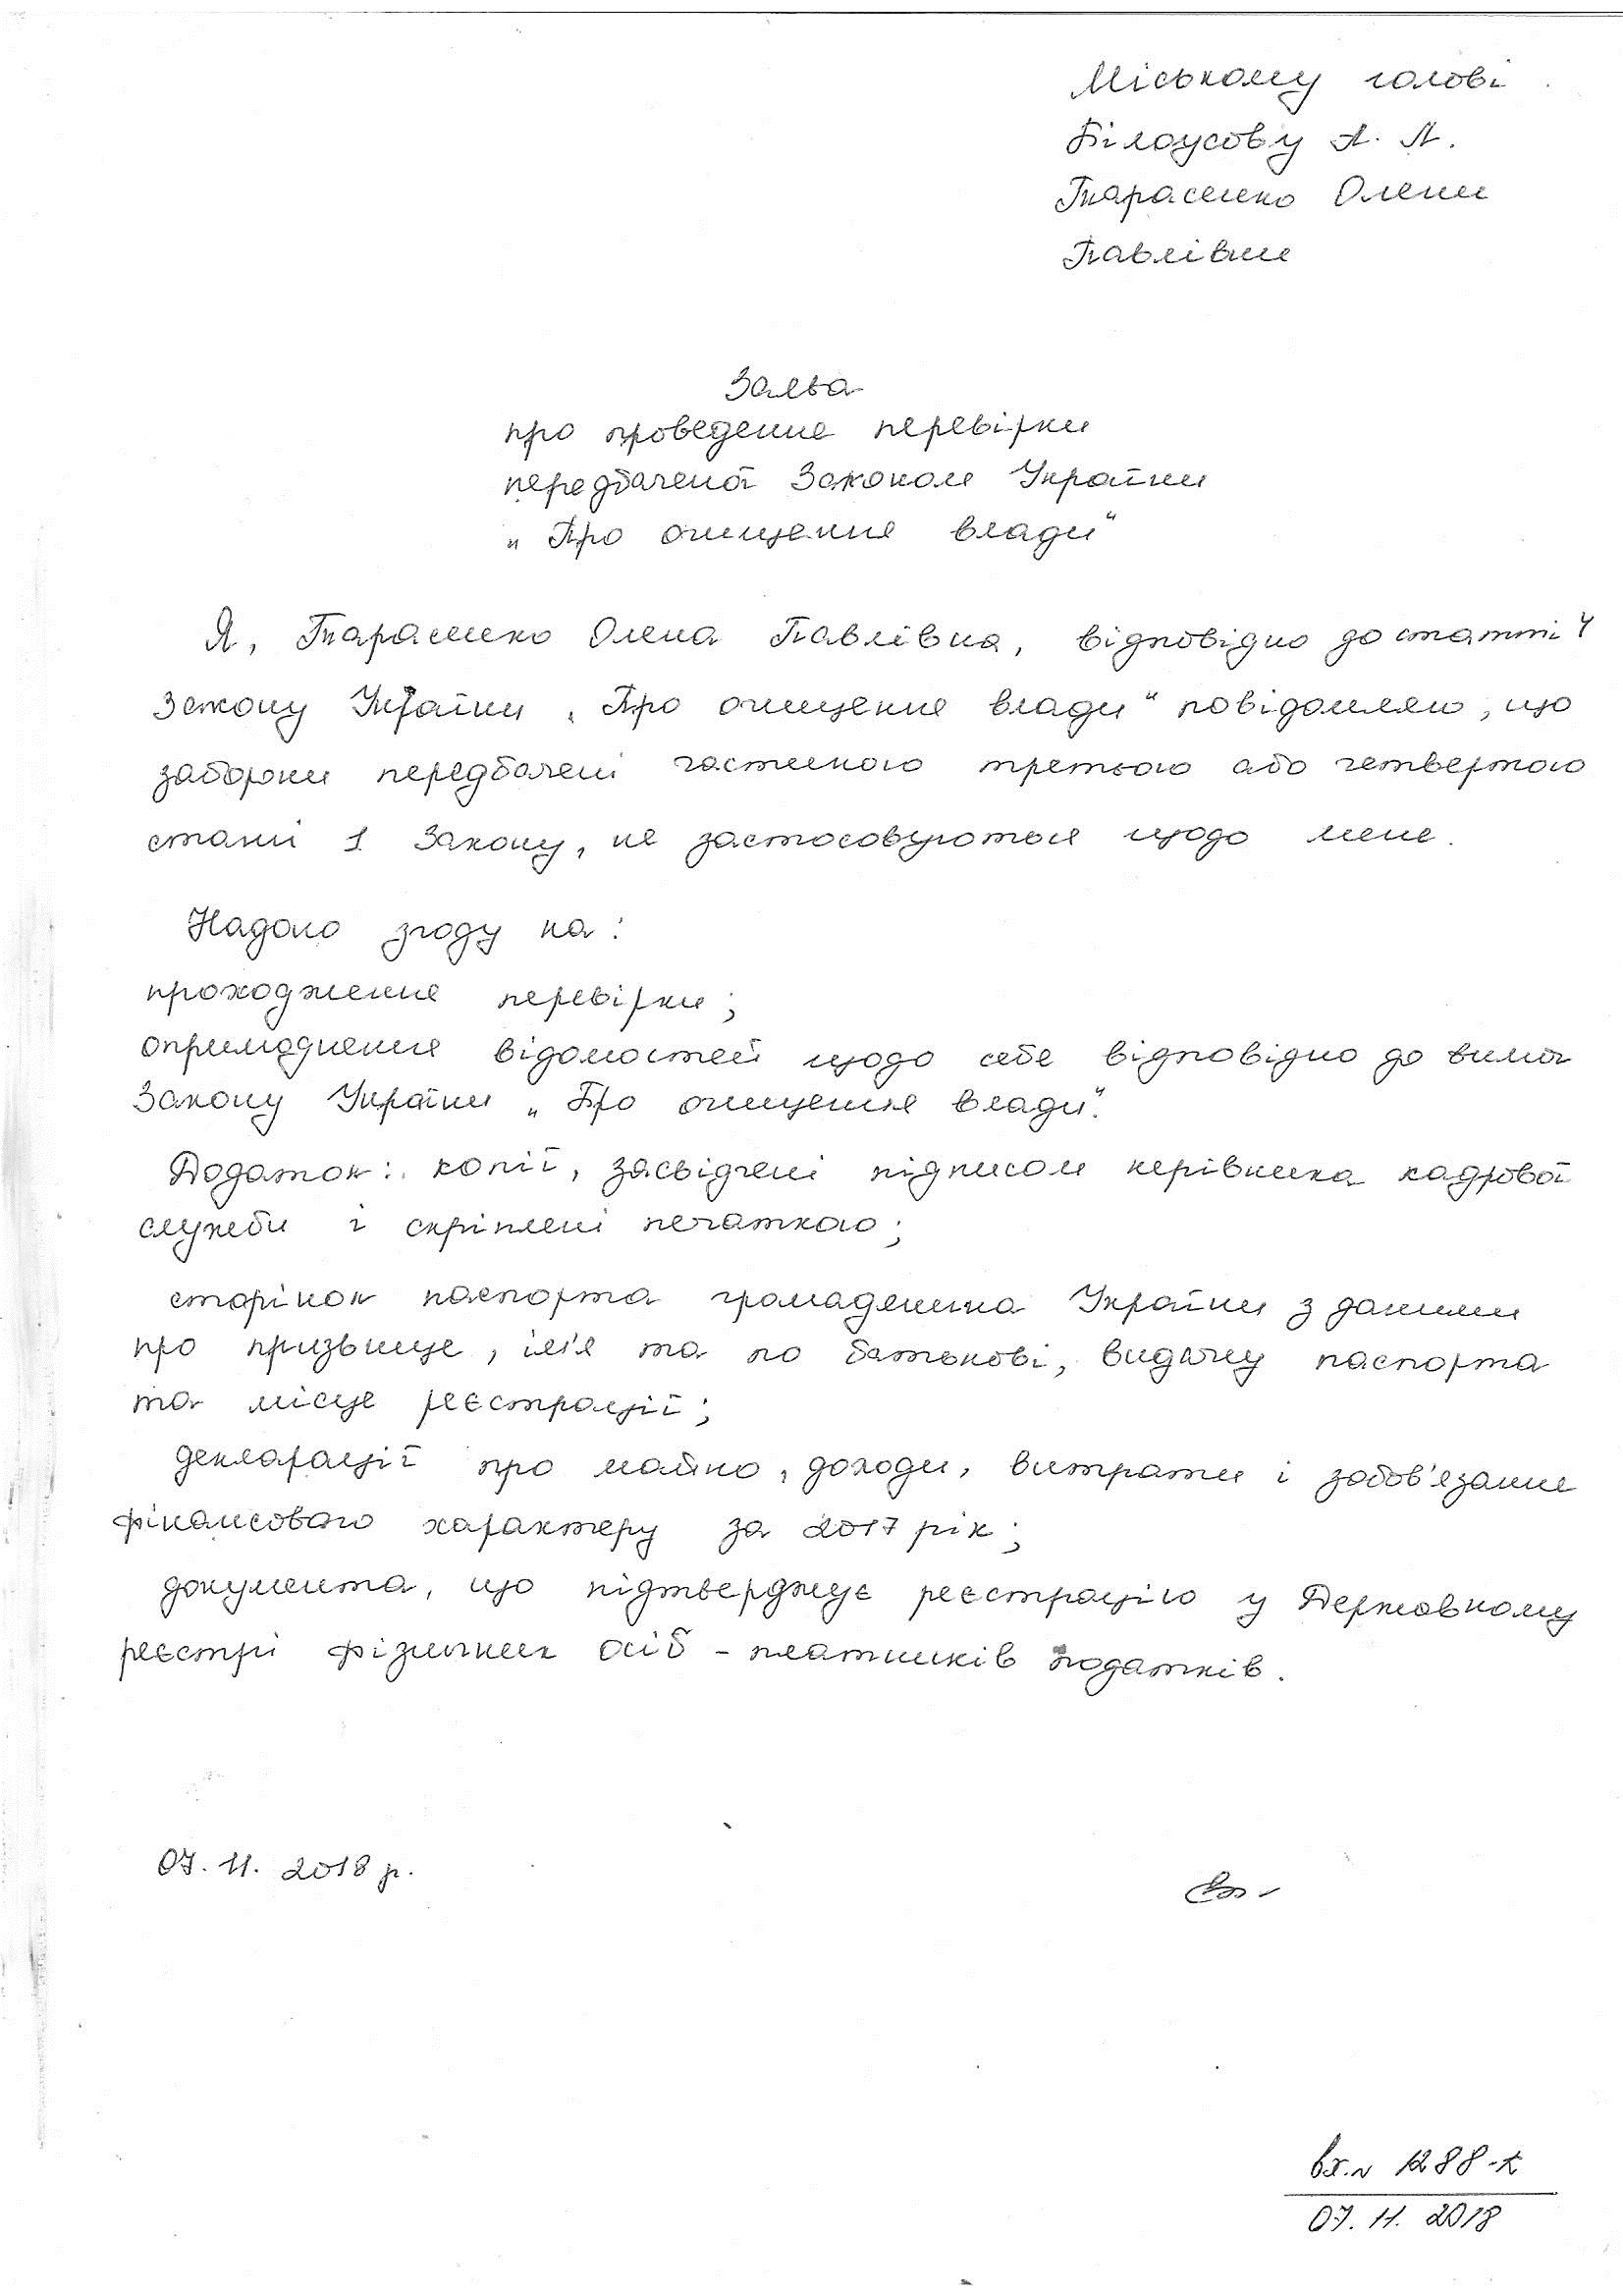 Міському голові
Білоусову А. А.
Тарасенко Олени
Павлівни
Заява
про проведення перевірки
передбаченої Законом України
„Про очищення влади“
Я, Тарасенко Олена Павлівна, відповідно до статті 4
Закону України „Про очищення влади“ повідомляю, що
заборони передбачені частиною третьою або четвертою
статті 1 Закону, не застосовуються щодо мене.
Надаю згоду на:
проходження перевірки;
оприлюднення відомостей щодо себе відповідно до вимог
Закону України „Про очищення влади“.
Додаток: копії, засвідчені підписом керівника кадрової
служби і скріплені печаткою;
сторінок паспорта громадянина України з даними
про прізвище, ім'я та по батькові, видачу паспорта
та місце реєстрації;
декларації про майно, доходи, витрати і зобов'язання
фінансового характеру за 2017 рік;
документа, що підтверджує реєстрацію у Державному
реєстрі фізичних осіб - платників податків.
07. 11. 2018 р.
вх.№ 1288-к
07. 11. 2018